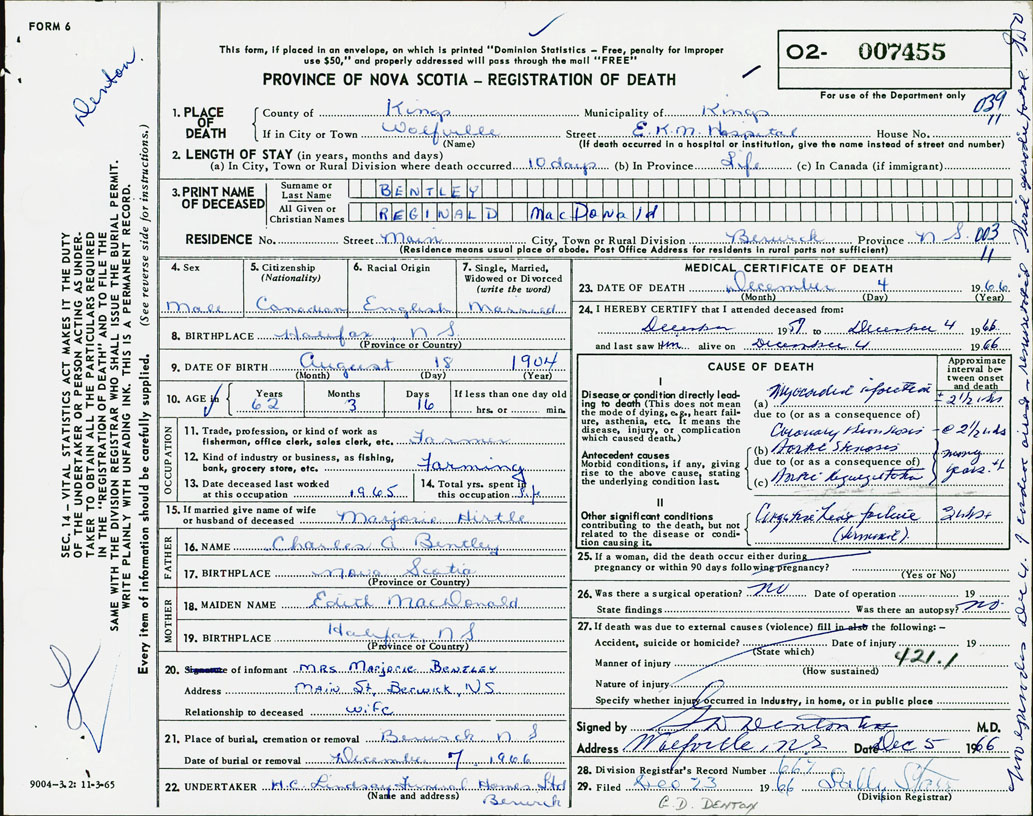 FORM 6
Denton.
This form, if placed in an envelope, on which is printed "Dominion Statistics – Free, penalty for improper
use $50," and properly addressed will pass through the mail "FREE"
PROVINCE OF NOVA SCOTIA – REGISTRATION OF DEATH
O2- 007455
For use of the Department only
039
11
1. PLACE OF DEATH
County of Kings Municipality of Kings
If in City or Town Wolfville Street E.K.M. Hospital House No.
(Name) (If death occurred in a hospital or institution, give the name instead of street and number)
2. LENGTH OF STAY (in years, months and days)
(a) In City, Town or Rural Division where death occurred 10 days (b) In Province Life (c) In Canada (if immigrant)
3. PRINT NAME OF DECEASED
Surname or Last Name BENTLEY
All Given or Christian Names REGINALD MacDonald
RESIDENCE No. Street Main City, Town or Rural Division Berwick Province N S. 003
(Residence means usual place of abode. Post Office Address for residents in rural parts not sufficient)
11
4. Sex 5. Citizenship (Nationality) 6. Racial Origin 7. Single, Married, Widowed or Divorced (write the word)
Male Canadian English Married
8. BIRTHPLACE Halifax N S
(Province or Country)
9. DATE OF BIRTH August 18 1904
(Month) (Day) (Year)
10. AGE in Years Months Days If less than one day old
62 3 16 hrs. or min.
OCCUPATION
11. Trade, profession, or kind of work as
fisherman, office clerk, sales clerk, etc. Farmer
12. Kind of industry or business, as fishing,
bank, grocery store, etc. Farming
13. Date deceased last worked
at this occupation 1965
14. Total yrs. spent in
this occupation Life
15. If married give name of wife
or husband of deceased Marjorie Hirtle
FATHER
16. NAME Charles A Bentley
17. BIRTHPLACE Nova Scotia
(Province or Country)
MOTHER
18. MAIDEN NAME Edith MacDonald
19. BIRTHPLACE Halifax, N S
(Province or Country)
20. Signature of informant MRS Marjorie BENTLEY
Address Main St, Berwick, NS
Relationship to deceased wife
21. Place of burial, cremation or removal Berwick N S
Date of burial or removal December 7, 1966
22. UNDERTAKER H.C. Lindsay Funeral Homes Ltd
(Name and address) Berwick
MEDICAL CERTIFICATE OF DEATH
23. DATE OF DEATH December 4 1966
(Month) (Day) (Year)
24. I HEREBY CERTIFY that I attended deceased from:
December 1959 to December 4 1966
and last saw him alive on December 4 1966
CAUSE OF DEATH
Approximate interval between onset and death
I
Disease or condition directly leading to death (This does not mean the mode of dying, e.g., heart failure, asthenia, etc. It means the disease, injury, or complication which caused death.)
(a) Myocardial infarction ± 2½ wks
due to (or as a consequence of)
Coronary thrombosis @ 2½ wks
Antecedent causes
Morbid conditions, if any, giving rise to the above cause, stating the underlying condition last.
(b) Aortic Stenosis many
due to (or as a consequence of) years.
(c) Aortic Regurgitation
II
Other significant conditions
contributing to the death, but not related to the disease or condition causing it.
Congestive heart failure 2 wks +
(terminal)
25. If a woman, did the death occur either during
pregnancy or within 90 days following pregnancy?
(Yes or No)
26. Was there a surgical operation? NO Date of operation 19
State findings Was there an autopsy? NO
27. If death was due to external causes (violence) fill in also the following: –
Accident, suicide or homicide? Date of injury 19
(State which)
Manner of injury 421.1
(How sustained)
Nature of injury
Specify whether injury occurred in Industry, in home, or in public place
Signed by G D Denton M.D.
Address Wolfville, N.S Date Dec 5 1966
28. Division Registrar's Record Number 667
29. Filed Dec 23 1966 Sally
(Division Registrar)
G. D. DENTON
SEC. 14 – VITAL STATISTICS ACT MAKES IT THE DUTY
OF THE UNDERTAKER OR PERSON ACTING AS UNDER-
TAKER TO OBTAIN ALL THE PARTICULARS REQUIRED
IN THE "REGISTRATION OF DEATH" AND TO FILE THE
SAME WITH THE DIVISION REGISTRAR WHO SHALL ISSUE THE BURIAL PERMIT.
WRITE PLAINLY WITH UNFADING INK. THIS IS A PERMANENT RECORD.
Every item of information should be carefully supplied. (See reverse side for instructions.)
9004–3.2: 11-3-65